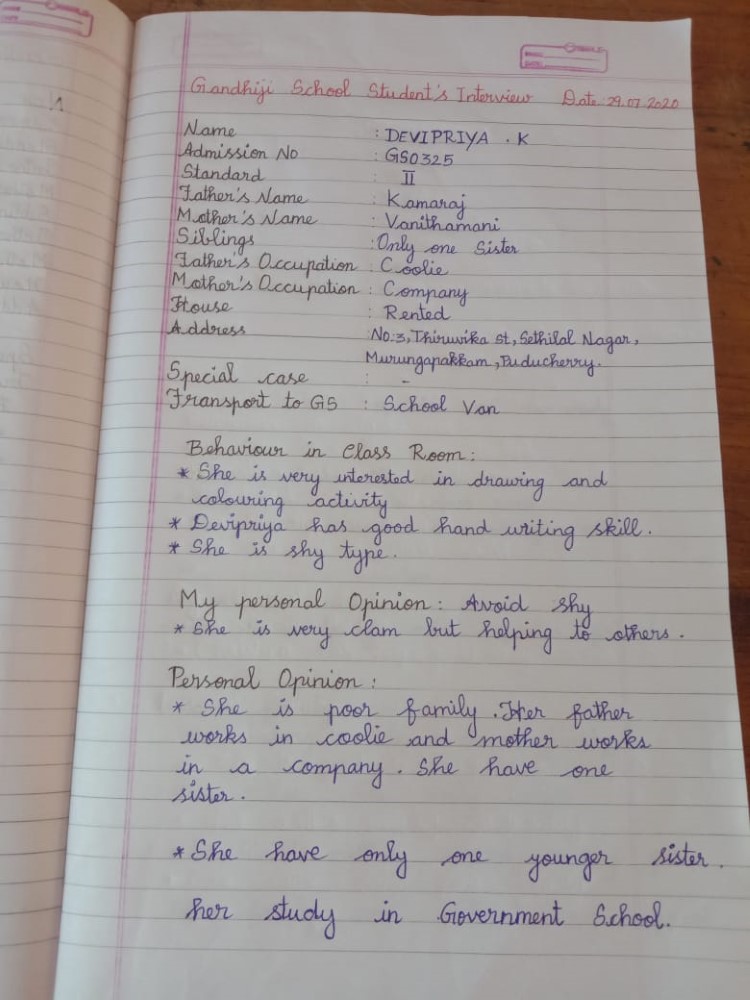 Gandhiji School Student's Interview Date: 29.07.2020
Name : DEVIPRIYA . K
Admission No : GS0325
Standard II
Father's Name : Kamaraj
Mother's Name : Vanithamani
Siblings : Only one Sister
Father's Occupation : Coolie
Mother's Occupation : Company
House : Rented
Address : No:3, Thiruvika st, Sethilal Nagar,
Murungapakkam, Puducherry.
Special case : -
Transport to GS : School Van
Behaviour in Class Room :
* She is very interested in drawing and
colouring activity
* Devipriya has good hand writing skill.
* She is shy type.
My personal Opinion : Avoid shy
* She is very clam but helping to others.
Personal Opinion :
* She is poor family. Her father
works in coolie and mother works
in a company. She have one
sister.
* She have only one younger sister.
her study in Government School.